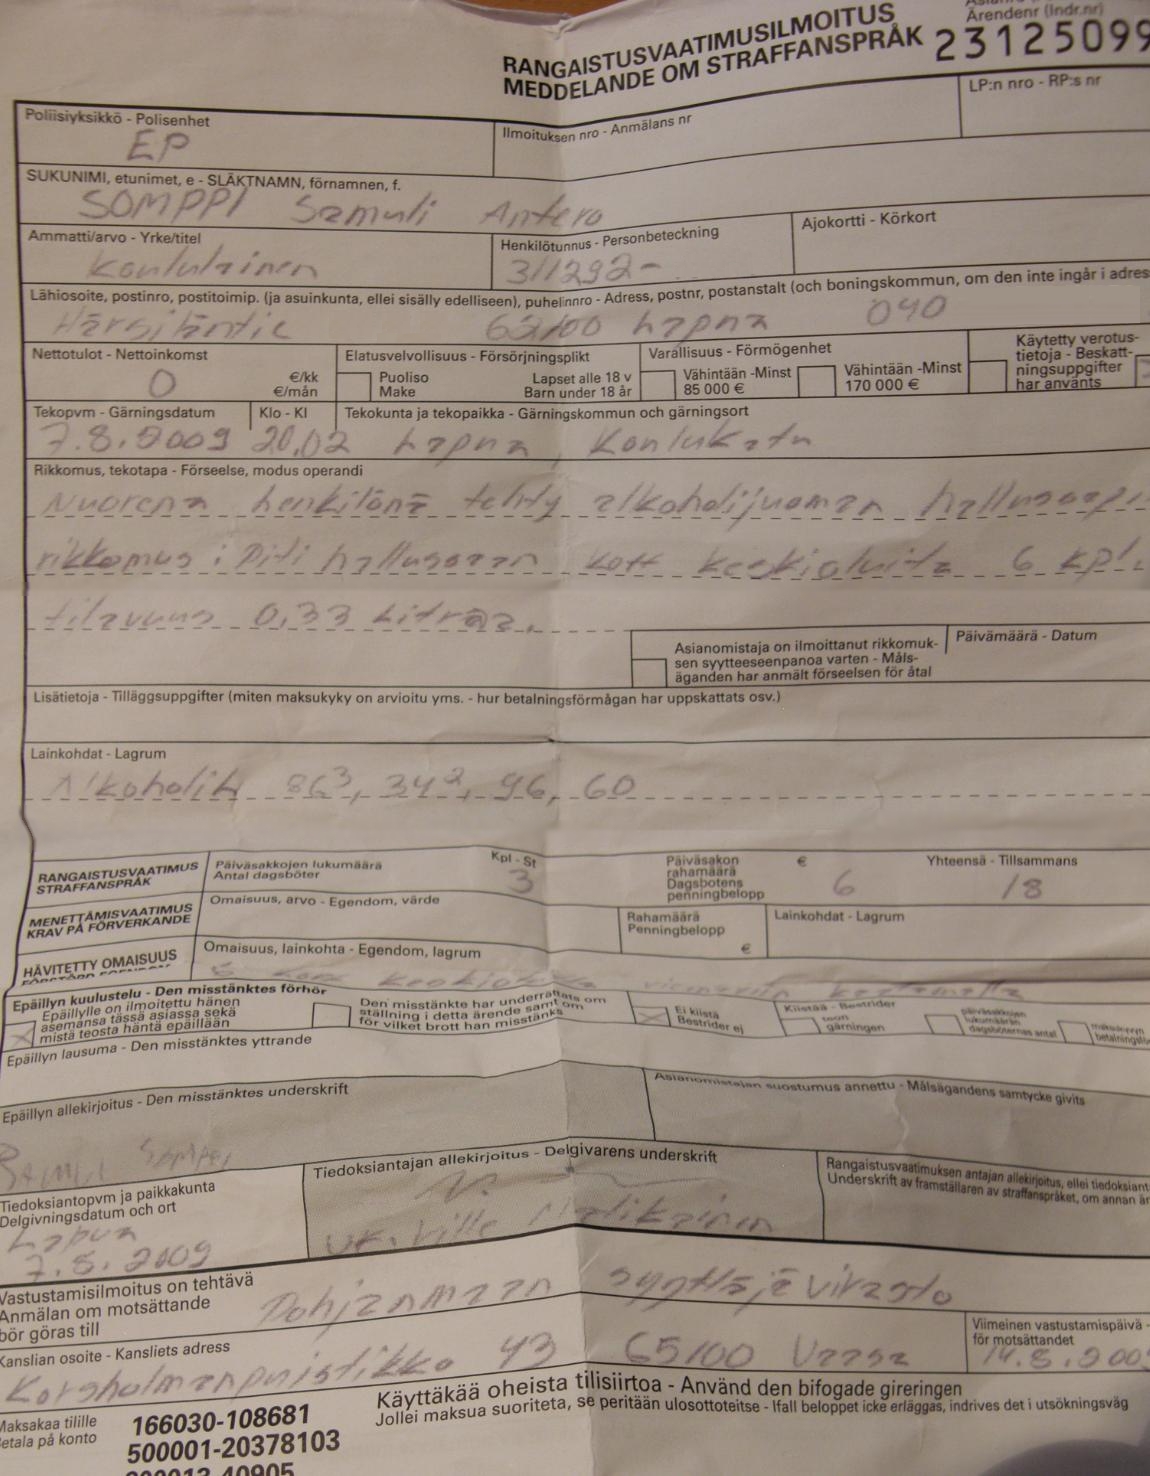 RANGAISTUSVAATIMUSILMOITUS
MEDDELANDE OM STRAFFANSPRÅK
Ärendenr (Indr.nr)
23125099
LP:n nro - RP:s nr
Poliisiyksikkö - Polisenhet
EP
Ilmoituksen nro - Anmälans nr
SUKUNIMI, etunimet, e - SLÄKTNAMN, förnamnen, f.
SOMPPI Samuli Antero
Ammatti/arvo - Yrke/titel
Koululainen
Henkilötunnus - Personbeteckning
311292-
Ajokortti - Körkort
Lähiosoite, postinro, postitoimip. (ja asuinkunta, ellei sisälly edelliseen), puhelinnro - Adress, postnr, postanstalt (och boningskommun, om den inte ingår i adres
62100 Lapua 040
Nettotulot - Nettoinkomst
0
€/kk
€/mån
Elatusvelvollisuus - Försörjningsplikt
Puoliso
Make
Lapset alle 18 v
Barn under 18 år
Varallisuus - Förmögenhet
Vähintään -Minst
85 000 €
Vähintään -Minst
170 000 €
Käytetty verotus-
tietoja - Beskatt-
ningsuppgifter
har använts
Tekopvm - Gärningsdatum
7.8.2009
Klo - Kl
20,02
Tekokunta ja tekopaikka - Gärningskommun och gärningsort
Lapua, Koulukatu
Rikkomus, tekotapa - Förseelse, modus operandi
Nuorena henkilönä tehty alkoholijuoman hallussapi
rikkomus: Piti hallussaan Koff keskiolutta 6 kpl.
tilavuus 0,33 Litraa.
Asianomistaja on ilmoittanut rikkomuk-
sen syytteeseenpanoa varten - Måls-
äganden har anmält förseelsen för åtal
Päivämäärä - Datum
Lisätietoja - Tilläggsuppgifter (miten maksukyky on arvioitu yms. - hur betalningsförmågan har uppskattats osv.)
Lainkohdat - Lagrum
AlkoholiL 86³, 34², 96, 60
RANGAISTUSVAATIMUS
STRAFFANSPRÅK
Päiväsakkojen lukumäärä
Antal dagsböter
Kpl - St
3
Päiväsakon
rahamäärä
Dagsbotens
penningbelopp
€
6
Yhteensä - Tillsammans
18
MENETTÄMISVAATIMUS
KRAV PÅ FÖRVERKANDE
Omaisuus, arvo - Egendom, värde
Rahamäärä
Penningbelopp
€
Lainkohdat - Lagrum
HÄVITETTY OMAISUUS
Omaisuus, lainkohta - Egendom, lagrum
Epäillyn kuulustelu - Den misstänktes förhör
Epäillylle on ilmoitettu hänen
asemansa tässä asiassa sekä
mistä teosta häntä epäillään
Den misstänkte har underrättats om
ställning i detta ärende samt om
för vilket brott han misstänks
Ei kiistä
Bestrider ej
Kiistää - Bestrider
teon
gärningen
päiväsakkojen
lukumäärän
dagsböternas antal
Epäillyn lausuma - Den misstänktes yttrande
Epäillyn allekirjoitus - Den misstänktes underskrift
Asianomistajan suostumus annettu - Målsägandens samtycke givits
Samuli Somppi
Tiedoksiantopvm ja paikkakunta
Delgivningsdatum och ort
Lapua
7.8.2009
Tiedoksiantajan allekirjoitus - Delgivarens underskrift
Ville
Rangaistusvaatimuksen antajan allekirjoitus, ellei tiedoksiant
Underskrift av framställaren av straffanspråket, om annan än
Vastustamisilmoitus on tehtävä
Anmälan om motsättande
bör göras till
Pohjanmaan syyttäjävirasto
Kanslian osoite - Kansliets adress
Korsholmanpuistikko 43 65100 Vaasa
Viimeinen vastustamispäivä -
för motsättandet
14.8.2009
Maksakaa tilille
Betala på konto
166030-108681
500001-20378103
Käyttäkää oheista tilisiirtoa - Använd den bifogade gireringen
Jollei maksua suoriteta, se peritään ulosottoteitse - Ifall beloppet icke erläggas, indrives det i utsökningsväg